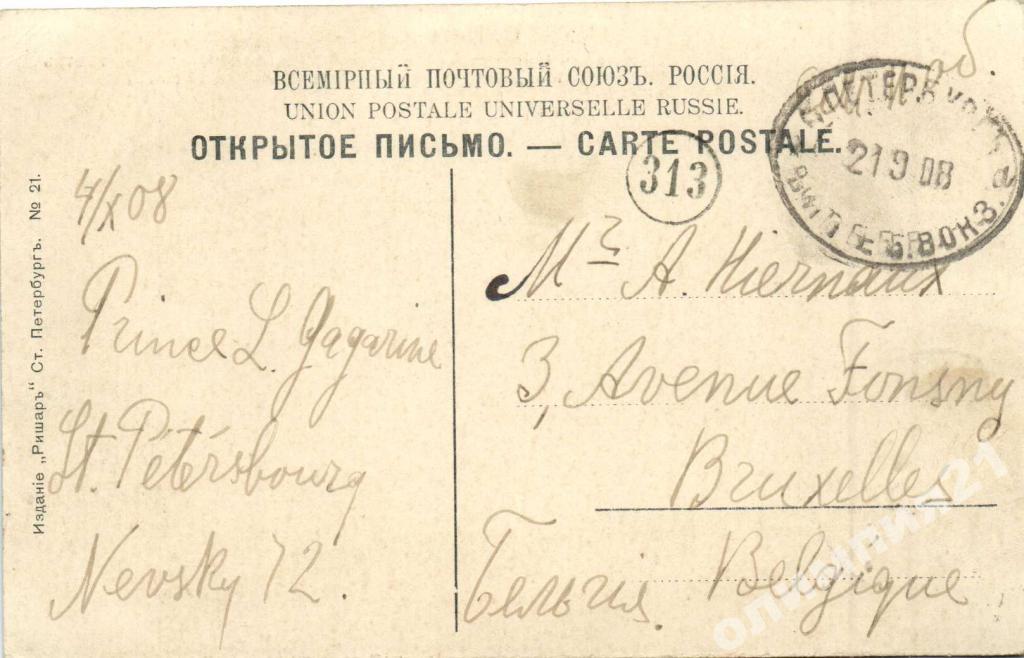 ВСЕМІРНЫЙ ПОЧТОВЫЙ СОЮЗЪ. РОССІЯ.
UNION POSTALE UNIVERSELLE RUSSIE.
ОТКРЫТОЕ ПИСЬМО. — CARTE POSTALE.
313
21 9 08
4/X 08
Prince L. Gagarine
St. Pétersbourg
Nevsky 72.
Mr A. Hiernaux
3, Avenue Fonsny
Bruxelles
Бельгія Belgique
Изданіе „Ришаръ“ Ст. Петербургъ. № 21.
олимпия21